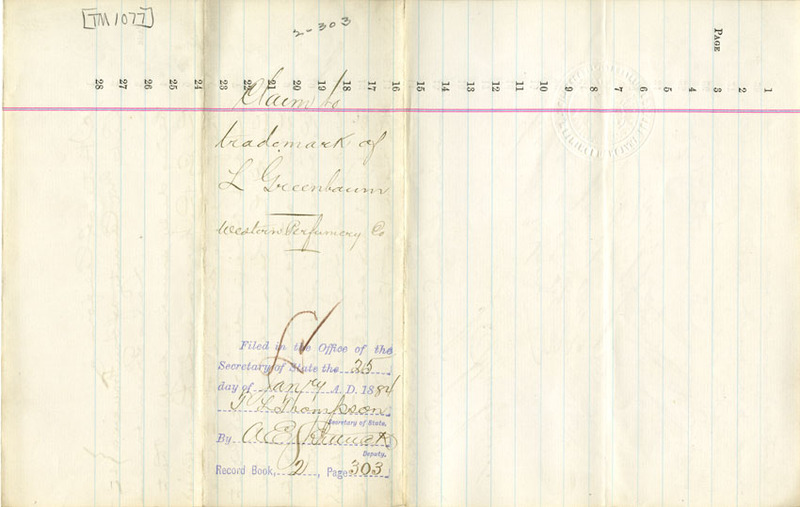 [TM 1077]
2-303
PAGE
1 2 3 4 5 6 7 8 9 10 11 12 13 14 15 16 17 18 19 20 21 22 23 24 25 26 27 28
Claim to
trademark of
L Greenbaum
Western Perfumery Co
Filed in the Office of the
Secretary of State the 25
day of Janry A. D. 1884
T L Thompson
Secretary of State.
By A E
Deputy.
Record Book, 2, Page 303